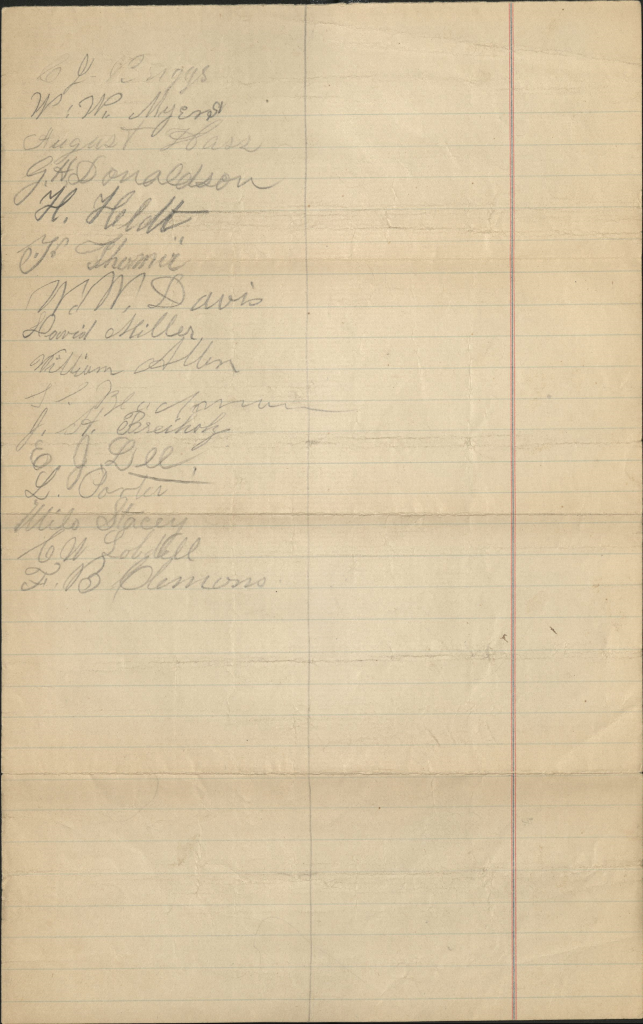 C J
W. W. Myers
August Hass
G. H Donaldson
H. Heldt
W. W. Davis
David Miller
William Allen
J. H. Breiholz
E J Lee.
L. Porter
Milo Stacey
C W Lobdell
F. B Clemons